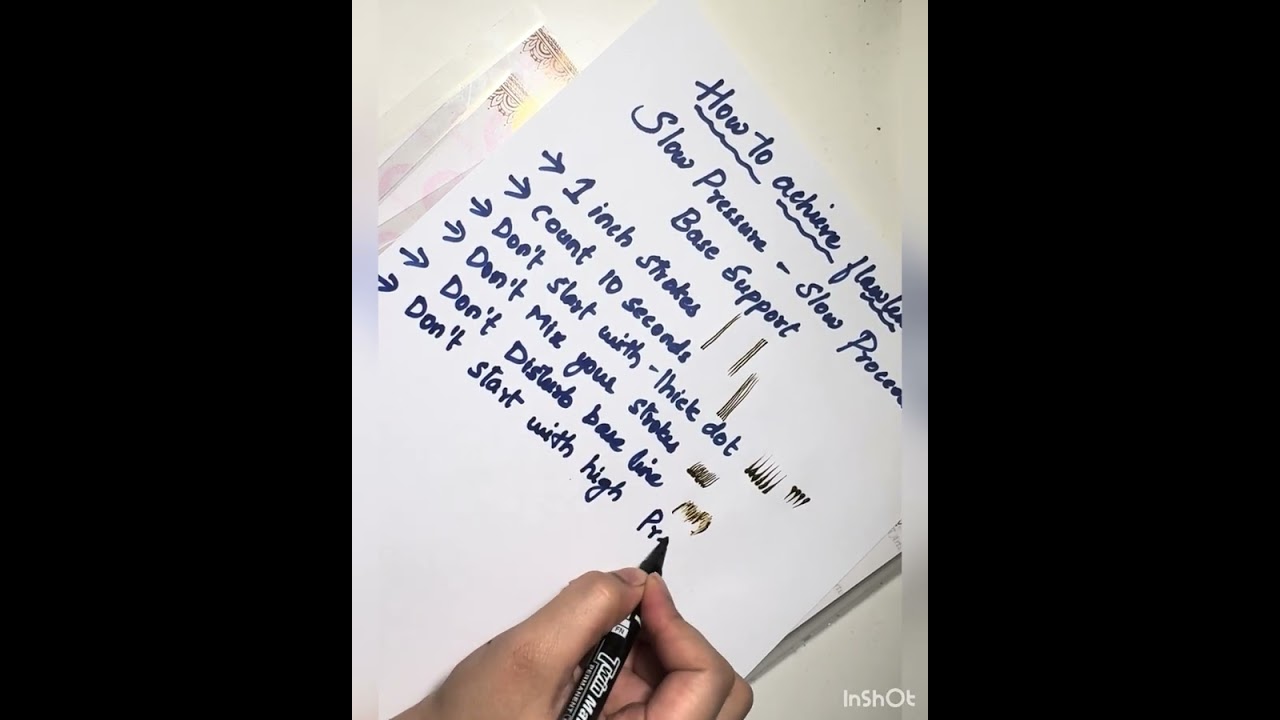 How to achieve flawle
Slow Pressure - Slow Proce
Base Support
→ 1 inch strokes
→ Count 10 seconds
→ Don't start with - thick dot
→ Don't Mix your strokes
→ Don't Disturb base line
→ Don't start with high Pr
Twin Mar
PERMANENT
InShOt